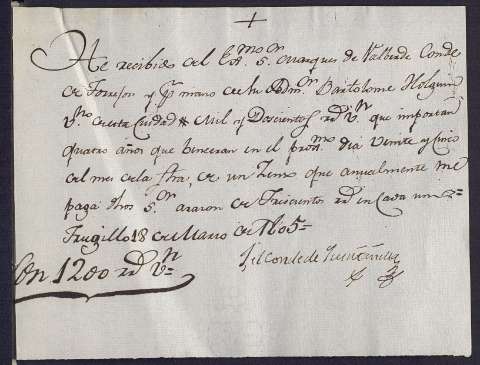 +
He recibido del Exmo Sr. Marques de Valverde Conde
de Torrejon y Pr mano de su Admor Dn Bartolome Holguin
Vno de esta Ciudad Mil y Doscientos rrd Vn que importan
quatro años que bencieran en el proxmo dia Veinte y Cinco
del mes de la fha, de un Zenso que anualmente me
paga dho Sor a razon de Trescientos rrd en Cada uno =
Trugillo 18 de Marzo de 1805=
Son 1200 rrd Vn
El Conde de